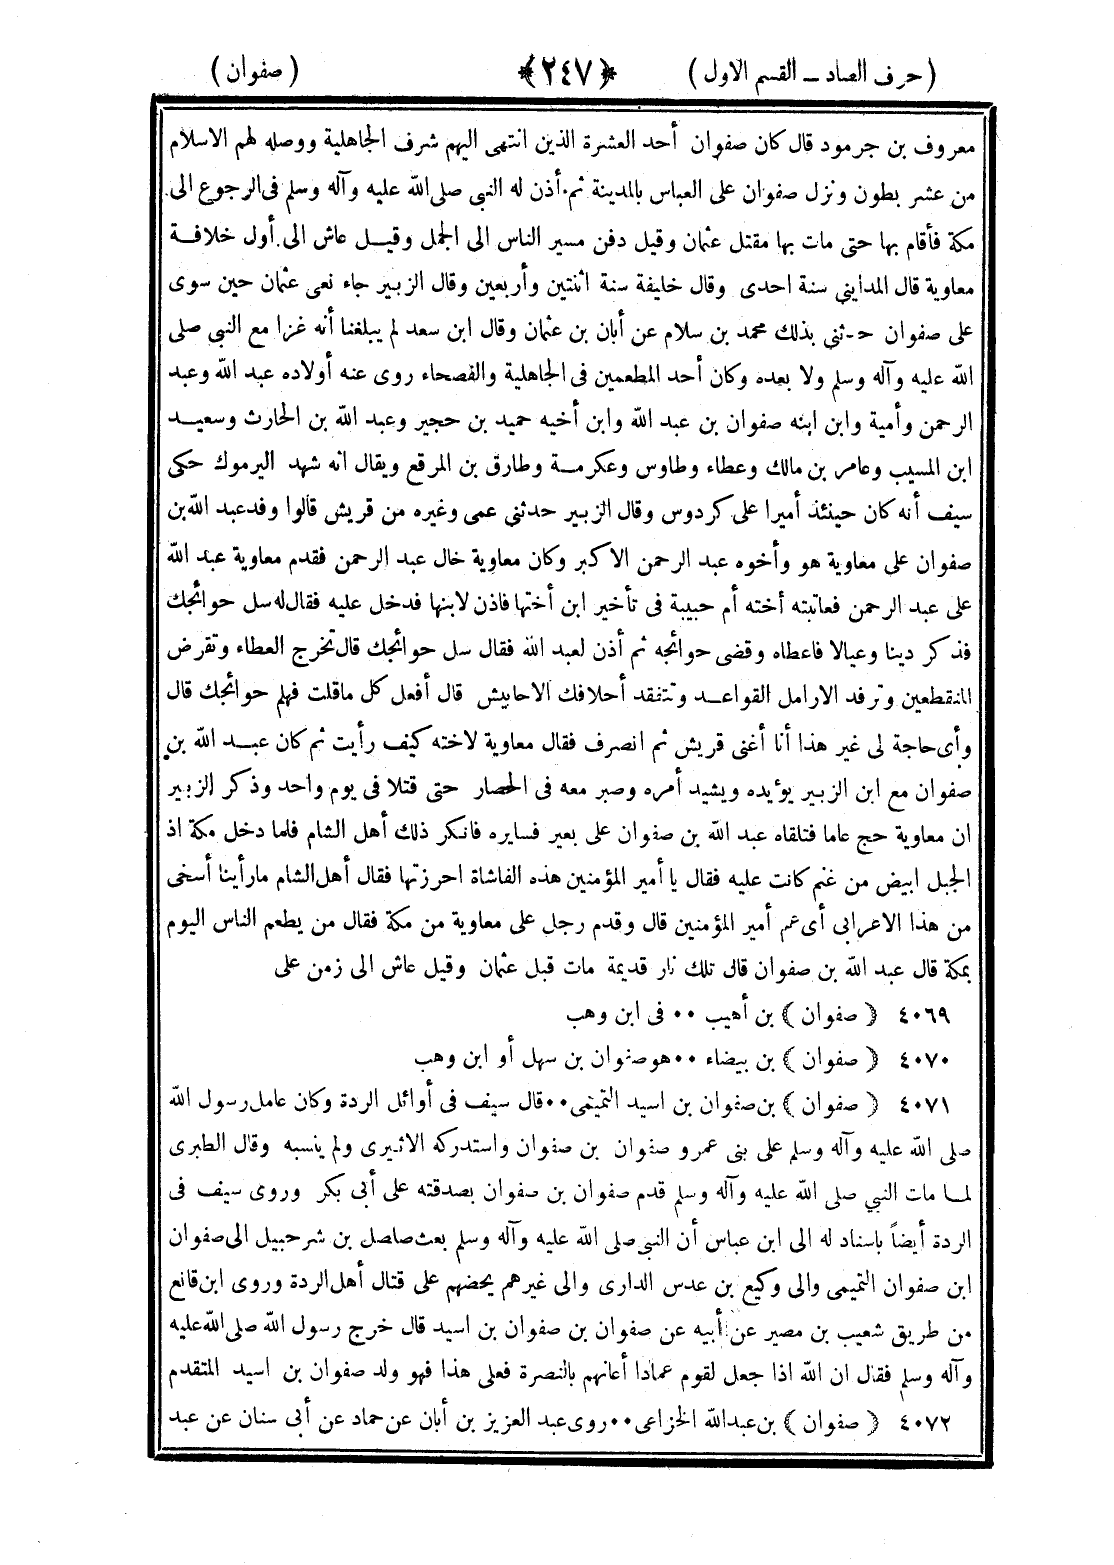 ( حرف الصاد ــ القسم الاول ) ﴿٢٤٧﴾ ( صفوان )
معروف بن جرمود قال كان صفوان أحد العشرة الذين انتهى اليهم شرف الجاهلية ووصله لهم الاسلام
من عشر بطون ونزل صفوان على العباس بالمدينة ثم أذن له النبي صلى الله عليه وآله وسلم فى الرجوع الى
مكة فأقام بها حتى مات بها مقتل عثمان وقيل دفن مسير الناس الى الجمل وقيل عاش الى أول خلافة
معاوية قال المدايني سنة احدى وقال خليفة سنة اثنتين وأربعين وقال الزبير جاء نعى عثمان حين سوى
على صفوان حدثني بذلك محمد بن سلام عن أبان بن عثمان وقال ابن سعد لم يبلغنا أنه غزا مع النبي صلى
الله عليه وآله وسلم ولا بعده وكان أحد المطعمين فى الجاهلية والفصحاء روى عنه أولاده عبد الله وعبد
الرحمن وأمية وابن ابنه صفوان بن عبد الله وابن أخيه حميد بن حجير وعبد الله بن الحارث وسعيد
ابن المسيب وعامر بن مالك وعطاء وطاوس وعكرمة وطارق بن المرقع ويقال انه شهد اليرموك حكى
سيف أنه كان حينئذ أميرا على كردوس وقال الزبير حدثني عمى وغيره من قريش قالوا وفد عبد الله بن
صفوان على معاوية هو وأخوه عبد الرحمن الاكبر وكان معاوية خال عبد الرحمن فقدم معاوية عبد الله
على عبد الرحمن فعاتبته أخته أم حبيبة فى تأخير ابن أختها فاذن لابنها فدخل عليه فقال له سل حوائجك
فذكر دينا وعيالا فاعطاه وقضى حوائجه ثم أذن لعبد الله فقال سل حوائجك قال تخرج العطاء وتفرض
المنقطعين وترفد الارامل القواعد وتتفقد أحلافك الاحابيش قال أفعل كل ما قلت فهلم حوائجك قال
وأى حاجة لى غير هذا أنا أغنى قريش ثم انصرف فقال معاوية لاخته كيف رأيت ثم كان عبد الله بن
صفوان مع ابن الزبير يؤيده ويشيد أمره وصبر معه فى الحصار حتى قتلا فى يوم واحد وذكر الزبير
ان معاوية حج عاما فتلقاه عبد الله بن صفوان على بعير فسايره فانكر ذلك أهل الشام فلما دخل مكة اذ
الجبل ابيض من غنم كانت عليه فقال يا أمير المؤمنين هذه الفاشاة احرزتها فقال أهل الشام ما رأينا أسخى
من هذا الاعرابى أى عم أمير المؤمنين قال وقدم رجل على معاوية من مكة فقال من يطعم الناس اليوم
بمكة قال عبد الله بن صفوان قال تلك نار قديمة مات قبل عثمان وقيل عاش الى زمن على
٤٠٦٩ ( صفوان ) بن أهيب ٠٠ فى ابن وهب
٤٠٧٠ ( صفوان ) بن بيضاء ٠٠ هو صفوان بن سهل أو ابن وهب
٤٠٧١ ( صفوان ) بن صفوان بن اسيد التميمى ٠٠ قال سيف فى أوائل الردة وكان عامل رسول الله
صلى الله عليه وآله وسلم على بنى عمرو صفوان بن صفوان واستدركه الاثيرى ولم ينسبه وقال الطبرى
لما مات النبي صلى الله عليه وآله وسلم قدم صفوان بن صفوان بصدقته على أبى بكر وروى سيف فى
الردة أيضاً باسناد له الى ابن عباس أن النبى صلى الله عليه وآله وسلم بعث صلصل بن شرحبيل الى صفوان
ابن صفوان التميمى والى وكيع بن عدس الدارى والى غيرهم يحضهم على قتال أهل الردة وروى ابن قانع
من طريق شعيب بن مصير عن أبيه عن صفوان بن صفوان بن اسيد قال خرج رسول الله صلى الله عليه
وآله وسلم فقال ان الله اذا جعل لقوم عمادا أعانهم بالنصرة فعلى هذا فهو ولد صفوان بن اسيد المتقدم
٤٠٧٢ ( صفوان ) بن عبد الله الخزاعى ٠٠ روى عبد العزيز بن أبان عن حماد عن أبى سنان عن عبد